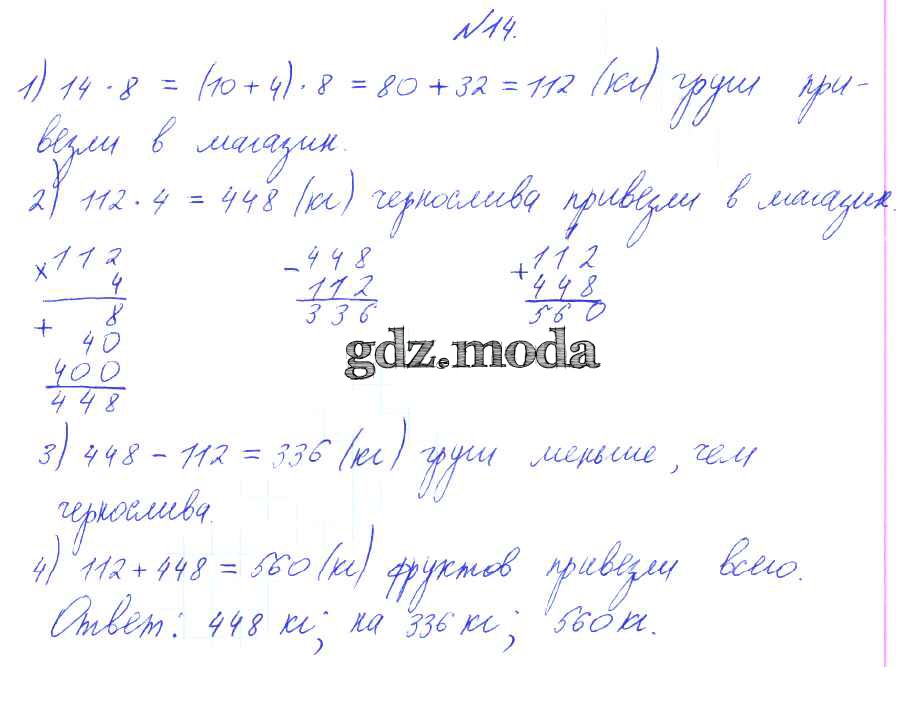 №14.
1) 14 · 8 = (10 + 4) · 8 = 80 + 32 = 112 (кг) груш при-
везли в магазин.
2) 112 · 4 = 448 (кг) чернослива привезли в магазин.
× 112 − 448 + 112
4 112 448
+ 8 336 560
40
400
448
gdz.moda
3) 448 − 112 = 336 (кг) груш меньше, чем
чернослива.
4) 112 + 448 = 560 (кг) фруктов привезли всего.
Ответ: 448 кг; на 336 кг; 560 кг.